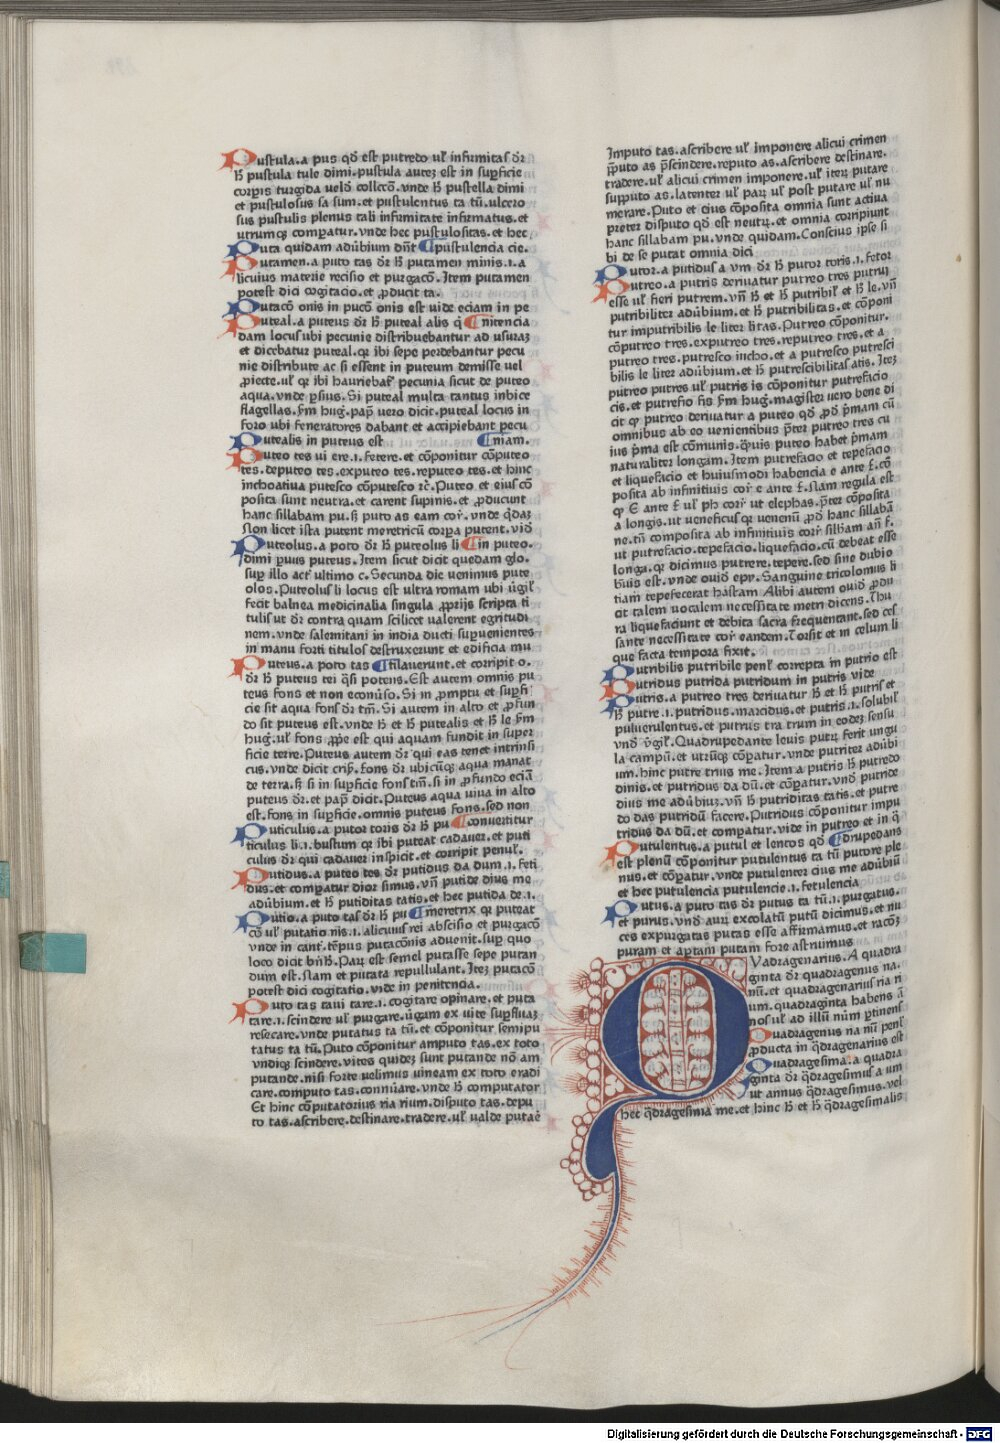 Pustula.a pus qd̄ est putredo ul̕ infirmitas dr̄
h̄ pustula tule dimi.pustula auteƺ est in sup̄ficie
corpīs turgida uelō collcc̄o.vnde h̄ pustella dimi
et pustulosus sa sum.et pustulentus ta tū.ulcero
sus pustulis plenus tali infirmitate infirmatus.et
utrumqꝫ comp̄atur.vnde hec pustulositas.et hec
Puta quidam adūbium dn̄t ¶pustulencia cie.
Putamen.a puto tas dr̄ h̄ putamen minis.i.a
licuius materie recisio et purgacō.Item putamen
potest dici cogitacio.et ꝓducit ta.
Putacō onis in pucō onis est uide eciam in pe
Puteal.a puteus dr̄ h̄ puteal alis q̄ ¶nitencia
dam locus ubi pecunie distribuebantur ad usuraƺ
et dicebatur puteal.qꝛ ibi sepe perdebantur pecu
nie distribute ac si essent in puteum demisse uel
ꝓiecte.ul̕ qꝛ ibi hauriebat̕ pecunia sicut de puteo
aqua.vnde p̄sius.Si puteal multa tantus inbice
flagellas.fm̄ hug̕.pap̄ uero dicit.puteal locus in
foro ubi feneratores dabant et accipiebant pecu
Putealis in puteus est ¶niam.
Puteo tes ui ere.i.fetere.et cōponitur cōputeo
tes.deputeo tes.exputeo tes.reputeo tes.et hinc
inchoatiua putesco cōputesco ꝛc̄.Puteo et eius cō
posita sunt neutra.et carent supinis.et ꝓducunt
hanc sillabam pu.sƺ puto as eam cor̕.vnde q̄daƺ
Non licet ista putent meretricū corp̄a putent.vid̄
Puteolus.a poto dr̄ h̄ puteolus li ¶in puteo.
dimi p̄uus puteus.Item sicut dicit quedam glo.
sup̄ illo act̕ ultimo c.Secunda die uenimus pute
olos.Puteolus̕ li locus est ultra romam ubi ūgil̕
fecit balnea medicinalia singula ꝓprijs scripta ti
tulis ut dr̄ contra quam scilicet valerent egritudi
nem.vnde salernitani in india ducti sup̄uenientes
in manu forti titulos destruxerunt et edificia mu
Puteus.a poto tas ¶tilauerunt.et corripit o.
dr̄ h̄ puteus tei q̄si potens.Est autem omnis pu
teus fons et non econūso.Si in ꝓmptu et sup̄fi
cie sit aqua fons dr̄ tm̄.Si autem in alto et ꝓfun
do sit puteus est.vnde h̄ et h̄ putealis et h̄ le fm̄
hug̕.ul̕ fons ꝓp̄e est qui aquam fundit in super
ficie terre.Puteus autem dr̄ qui eas tenet intrinsi
cus.vnde dicit crisꝰ.fons dr̄ ubicūqꝫ aqua manat
de terra.sƺ si in sup̄ficie fons tm̄.si in ꝓfundo eciā
puteus dr̄.et pap̄ dicit.Puteus aqua uiua in alto
est.fons in sup̄ficie.omnis puteus fons.sed non
Puticulus.a putor toris dr̄ h̄ pu ¶conuertitur
ticulus li.i.bustum qꝛ ibi puteat cadauer.et puti
culus dr̄ qui cadauer inspicit.et corripit penul̕.
Putidus.a puteo tes dr̄ putidus da dum.i.feti
dus.et comp̄atur dior simus.vn̄ putide dius me
adūbium.et h̄ putiditas tatis.et hec putida de.i.
Putio.a puto tas dr̄ h̄ pu ¶meretrix qꝛ puteat
cō ul̕ putatio nis.i.alicuius rei abscisio et purgacō
vnde in cant̕.tēpus putacōnis aduenit.sup̄ quo
loco dicit bn̄h̄.Parƺ est semel putasse sepe putan
dum est.Nam et putata repullulant.Iteƺ putacō
potest dici cogitatio.vnde in penitencia.
Puto tas taui tare.i.cogitare opinare.et puta
tare.i.scindere ul̕ purgare.ūgam ex uite sup̄fluaƺ
resecare.vnde putatus ta tū.et cōponitur semipu
tatus ta tū.Puto cōponitur amputo tas.ex toto
vndiqꝫ scindere.vites quideƺ sunt putande nō am
putande.nisi forte velimus vineam ex toto eradi
care.computo tas.connūare.vnde h̄ computator
Et hinc cōputatorius ria rium.disputo tas.depu
to tas.ascribere.destinare.tradere.ul̕ valde putaē
Imputo tas.ascribere ul̕ imponere alicui crimen
p̄puto as p̄scindere.reputo as.ascribere destinare.
tradere.ul̕ alicui crimen imponere.ul̕ iterƺ putare
supputo as.latenter ul̕ parƺ ul̕ post putare ul̕ nu
merare.Puto et eius cōposita omnia sunt actiua
preter disputo qd̄ est neutrƺ.et omnia corripiunt
hanc sillabam pu.vnde quidam.Conscius ipse si
bi de se putat omnia dici
Putor.a putidus a um dr̄ h̄ putor toris.i.fetor
Putreo.a putris deriuatur putreo tres putrui
esse ul̕ fieri putrem.vn̄ h̄ et h̄ putribil̕ et h̄ le.vn̄
putribiliter adūbium.et h̄ putribilitas.et cōponi
tur imputribilis le liter litas.Putreo cōponitur.
cōputreo tres.exputreo tres.reputreo tres.et a
putreo tres.putresco incho.et a putresco putresci
bilis le liter adūbium.et h̄ putrescibilitas atis.Iteƺ
putreo putres ul̕ putris is cōponitur putrefacio
cis.et putrefio fis fm̄ hug̕.magister uero bene di
cit qꝙ putreo deriuatur a puteo qd̄ ꝓd̄ p̄mam cū
omnibus ab eo uenientibus p̄ter putreo tres cu
ius p̄ma est cōmunis.q̄uis puteo habet p̄mam
naturaliter longam.Item putrefacio et tepefacio
et liquefacio et huiusmodi habencia e ante f.cō
posita ab infinitiuis cor̄ e ante f.Nam regula est
qꝙ E ante f ul̕ ph cor̄ ut elephas.p̄ter cōposita
a longis.ut ueneficus qꝛ uenenū ꝓd̄ hanc sillabā
ne.tn̄ composita ab infinitiuis cor̄ sillīam an̄ f.
ut putrefacio.tepefacio.liquefacio.cū debeat esse
longa.qꝛ dicimus putrere.tepere.sed sine dubio
b̄uis est.vnde ouid̄ epy.Sanguine tricolomus li
tiam tepefecerat hastam Alibi autem ouid̄ ꝓdu
cit talem uocalem necessitate metri dicens.Thu
ra liquefaciunt et debita sacra frequentant.sed ces
sante necessitate cor̄ eandem.Torsit et in celum li
que facta tempora fixit.
Putribilis putribile penl̕ correpta in putrio est
Putridus putrida putridum in putris vide
Putris.a putreo tres deriuatur h̄ et h̄ putris et
h̄ putre.i.putridus.marcidus.et putris.i.solubil̕
puluerulentus.et putrus tra trum in eodeƺ sensu
vnd̄ v̄gil̕.Quadrupedante leuis putrƺ ferit ungu
la campū.et utrūqꝫ cōp̄atur.vnde putriter adūbi
um.hinc putre trius me.Item a putris h̄ putredo
dinis.et putridus da dū.et cōp̄atur.vnd̄ putride
dius me adūbiuƺ.vn̄ h̄ putriditas tatis.et putre
do das putridū facere.Putridus cōponitur impu
tridus da dū.et comp̄atur.vide in putreo et in q̄
Putulentus.a putul et lentos qd̄ ¶drupedans
est plenū cōponitur putulentus ta tū putore ple
nus.et cōp̄atur.vnde putulenter cius me adūbiū
et hec putulencia putulencie.i.fetulencia
Putus.a puto tas dr̄ putus ta tū.i.purgatus.
et purus.vnd̄ aurƺ excolatū putū dicimus.et nu
ces expurgatas putas esse affirmamus.et racōƺ
puram et aptam putam fore astruimus
QVadragenarius.A quadra
ginta dr̄ quadragenus na.
nū.et quadragenarius ria ri
um.quadraginta habens ā
nos ul̕ ad illū nūm p̄tinens
Quadragenus na nū penl̕
ꝓducta in q̄dragenarius est
Quadragesima.a quadra
ginta dr̄ q̄dragesimus a um
ut annus q̄dragesimus.vel
hec q̄dragesima me.et hinc h̄ et h̄ q̄dragesimalis
Digitalisierung gefördert durch die Deutsche Forschungsgemeinschaft - DFG